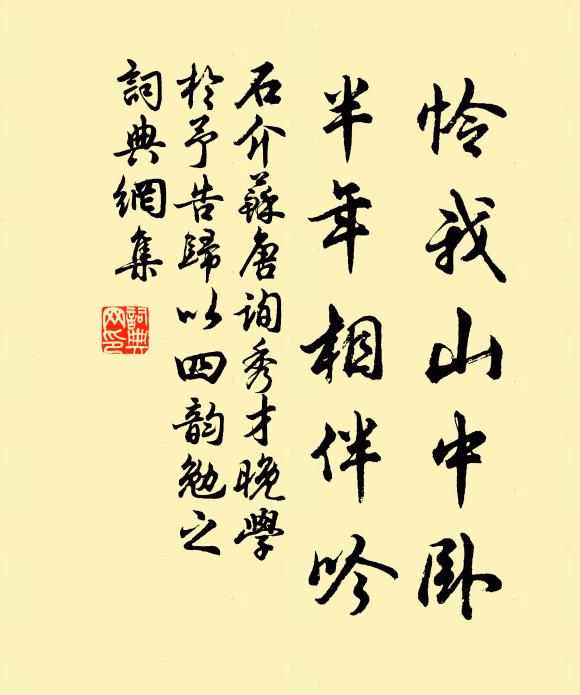 怜我山中卧
半年相伴吟
石介蘇唐询秀才晚學
於予告歸以四韵勉之
詞典網集
詞典
网印